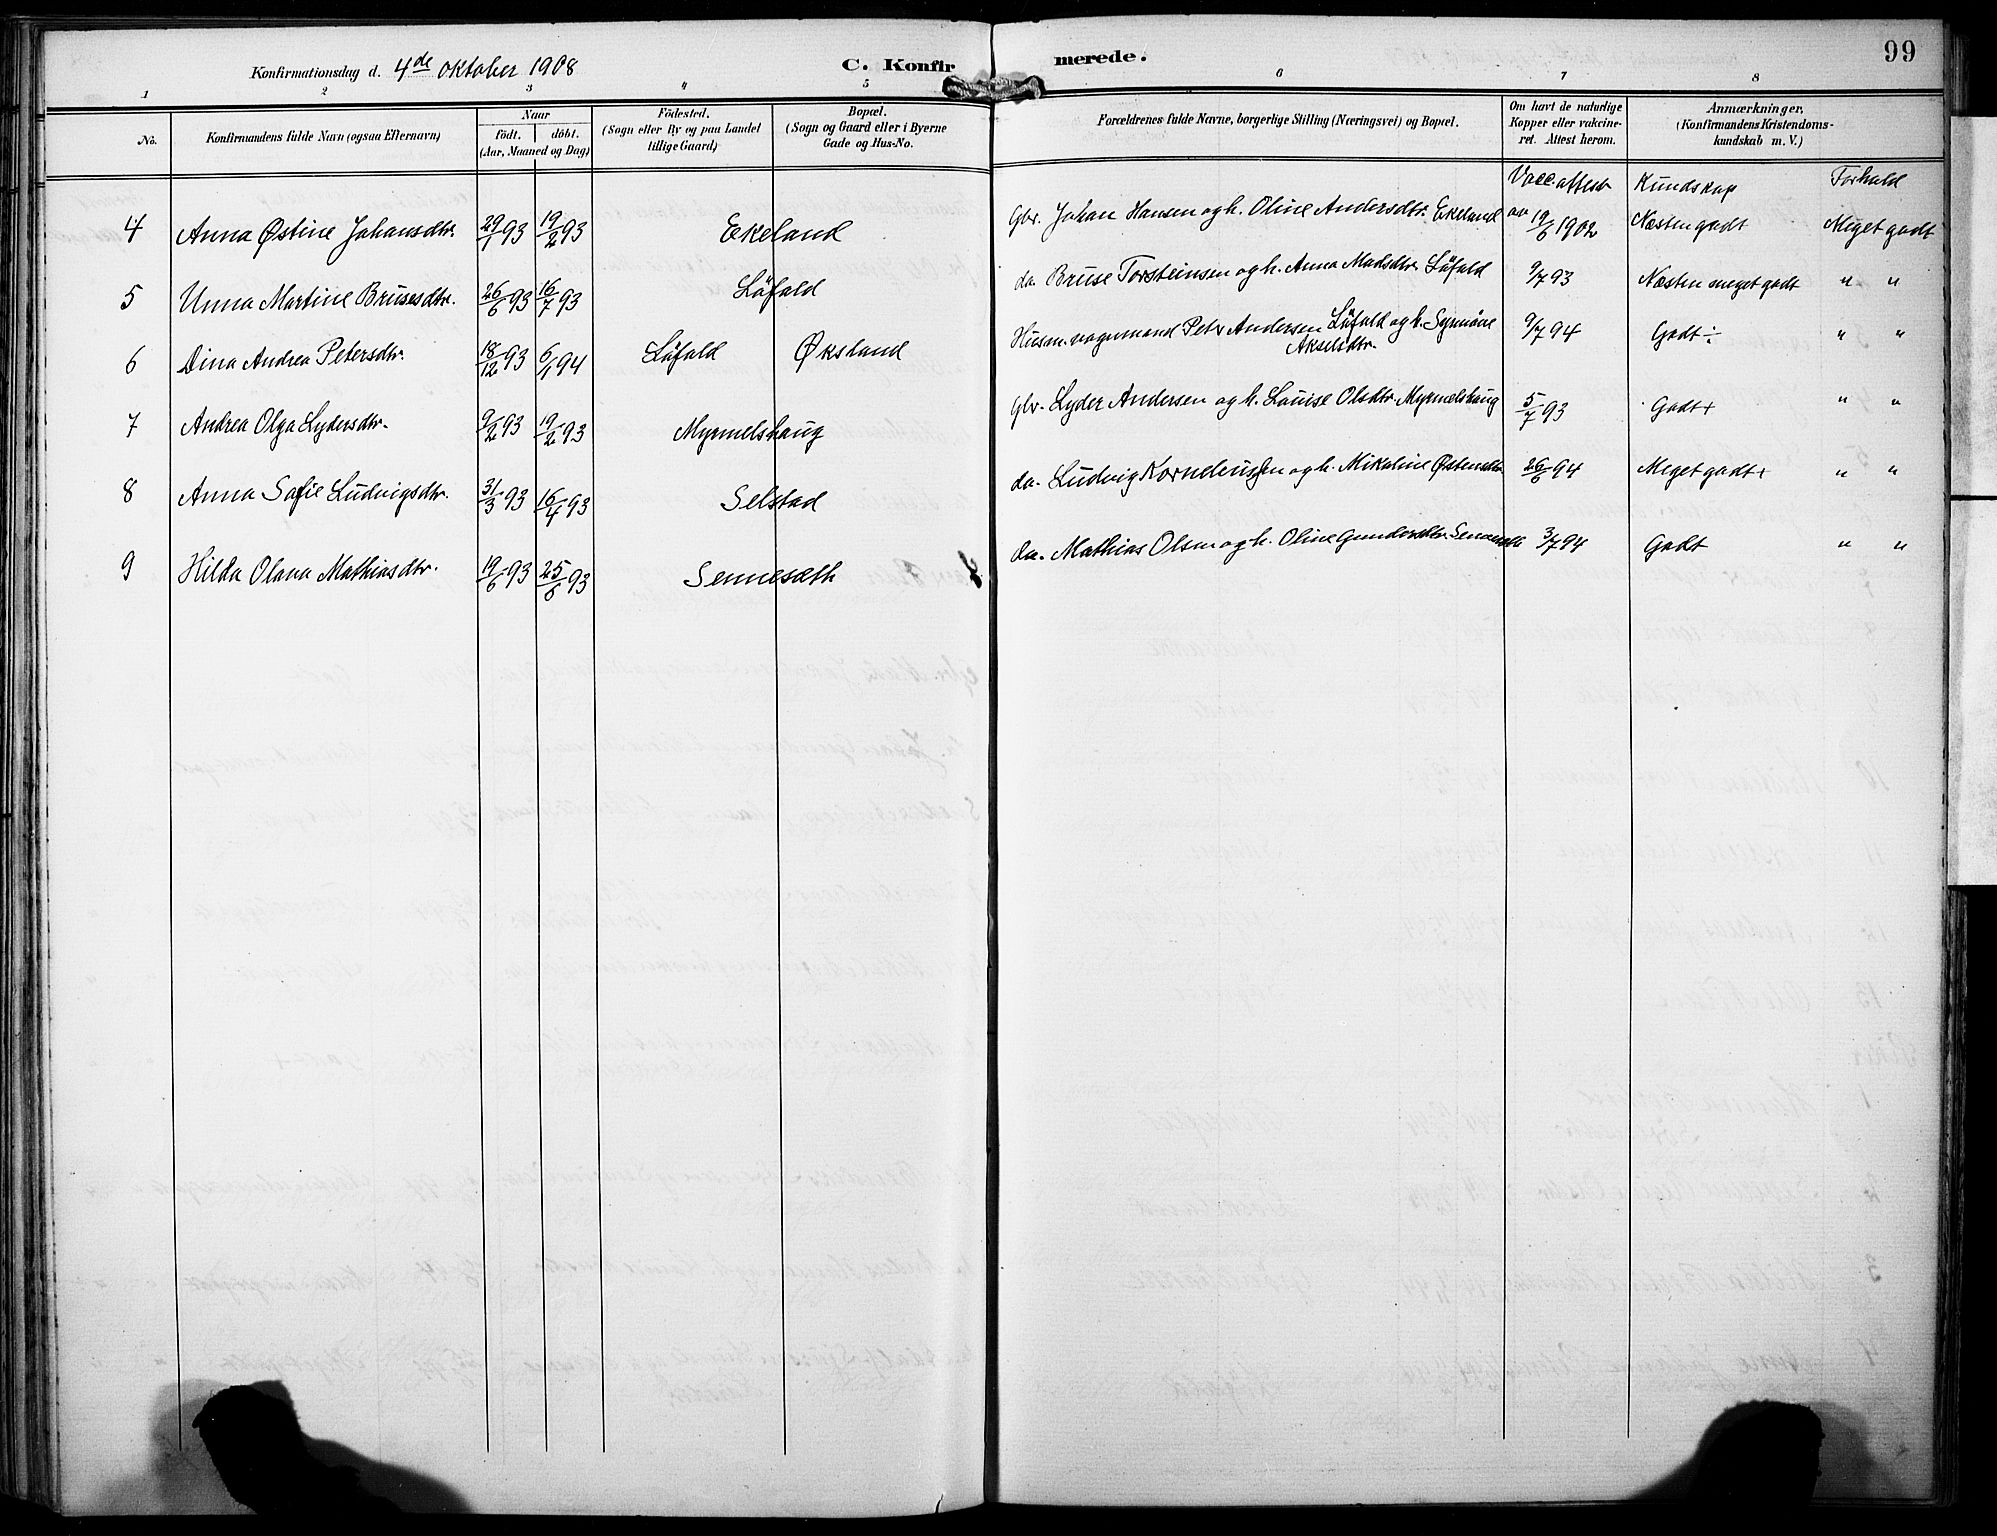 99
Konfirmationsdag d. 4de oktober 1908 C. Konfir merede.
1 2 3 4 5 6 7 8
No. Konfirmandens fulde Navn (ogsaa Efternavn) Naar födt. döbt. (Aar, Maaned og Dag) Födested. (Sogn eller By og paa Landet tillige Gaard) Bopæl. (Sogn og Gaard eller i Byerne Gade og Hus-No. Forældrenes fulde Navne, borgerlige Stilling (Næringsvei) og Bopæl. Om havt de naturlige Kopper eller vakcineret. Attest herom. Anmærkninger, (Konfirmandens Kristendomskundskab m. V.)
Vacc. attest Kundskap Forhold
4 Anna Östine Johansdtr. 29/1 93 19/2 93 Ekeland Gbr. Johan Hansen og h. Oline Andersdtr. Ekeland av 19/6 1902 Næsten godt Meget godt
5 Unna Martine Brusesdtr. 26/6 93 16/7 93 Löfald do. Bruse Torsteinsen og h. Anna Madsdtr. Löfald 9/7 93 Næsten meget godt " "
6 Dina Andrea Petersdtr. 18/12 93 6/1 94 Löfald Øksland Husm. vognmand Peter Andersen Löfald og h. Syrnöve Akselsdtr. 9/7 94 Godt ÷ " "
7 Andrea Olga Lydersdtr. 9/2 93 19/2 93 Myrmelshaug Gbr. Lyder Andersen og h. Louise Olsdtr. Myrmelshaug 5/7 93 Godt + " "
8 Anna Sofie Ludvigsdtr. 31/3 93 16/4 93 Selstad do. Ludvig Korneliussen og h. Mikaline Østensdtr. 26/6 94 Meget godt + " "
9 Hilda Olava Mathiasdtr. 19/6 93 25/6 93 Sennesæth do. Mathias Olsen og h. Oline Gundersdtr. 3/7 94 Godt " "